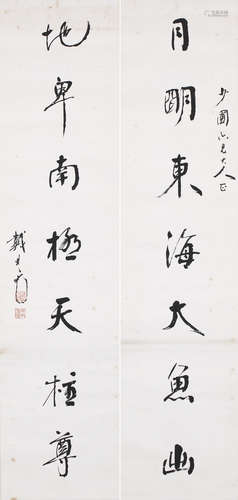 月明東海大魚幽
少圃仁兄大人正
地卑南極天柱尊